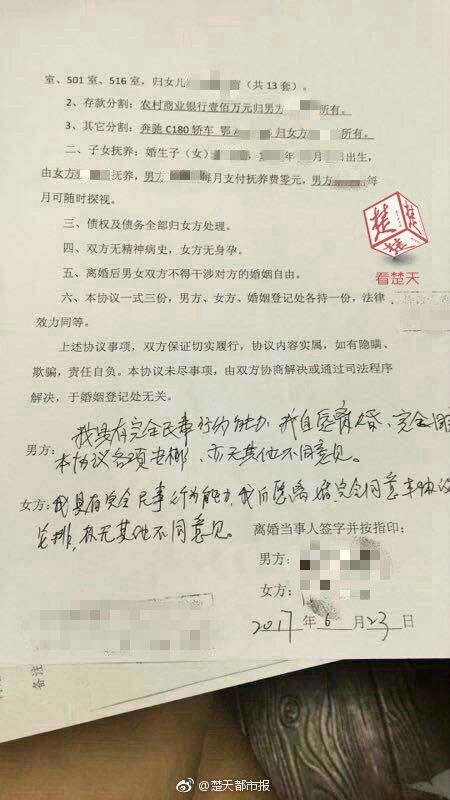 室、501 室、516 室,归女儿 (共 13 套)。
2、存款分割:农村商业银行壹佰万元归男方 所有。
3、其它分割:奔驰 C180 轿车 鄂 归女方 所有。
二、子女抚养:婚生子(女) 年 月 出生,
由女方 抚养,男方 每月支付抚养费零元,男方 每
月可随时探视。
三、债权及债务全部归女方处理。
四、双方无精神病史,女方无身孕。
五、离婚后男女双方不得干涉对方的婚姻自由。
六、本协议一式三份,男方、女方、婚姻登记处各持一份,法律
效力同等。
上述协议事项,双方保证切实履行,协议内容实属,如有隐瞒、
欺骗,责任自负。本协议未尽事项,由双方协商解决或通过司法程序
解决,于婚姻登记处无关。
我具有完全民事行为能力,我自愿离婚,完全同
男方:本协议各项安排,亦无其他不同意见。
女方:我具有完全民事行为能力,我自愿离婚完全同意本协议
安排,亦无其他不同意见。
离婚当事人签字并按指印:
男方:
女方:
2017 年 6 月 23 日
楚
楚
楚
看楚天
备注
@楚天都市报